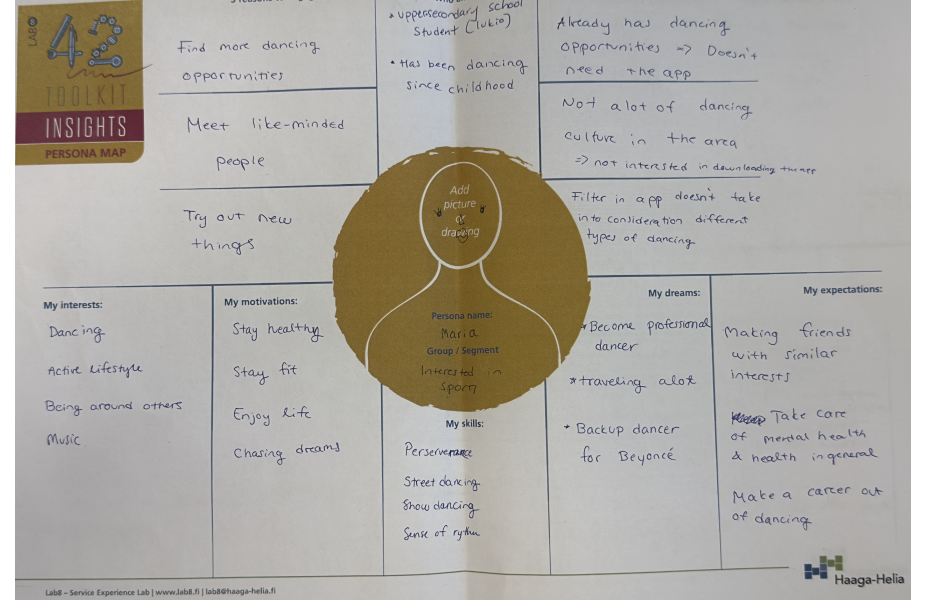 LAB8
42
TOOLKIT
INSIGHTS
PERSONA MAP
Find more dancing
opportunities
Meet like-minded
people
Try out new
things
* uppersecondary school
student (lukio)
* Has been dancing
since childhood
Already has dancing
opportunities => Doesn't
need the app
Not a lot of dancing
culture in the area
=> not interested in downloading the app
Filter in app doesn't take
into consideration different
types of dancing
Add
picture
or
drawing
Persona name:
Maria
Group / Segment
Interested in
My interests:
Dancing
Active lifestyle
Being around others
Music
My motivations:
Stay healthy
Stay fit
Enjoy life
Chasing dreams
My skills:
Street dancing
Show dancing
Sense of
My dreams:
* Become professional
dancer
* traveling alot
* Backup dancer
for Beyoncé
My expectations:
Making friends
with similar
interests
Take care
of mental health
& health in general
Make a career out
of dancing
Lab8 – Service Experience Lab | www.lab8.fi | lab8@haaga-helia.fi
Haaga-Helia